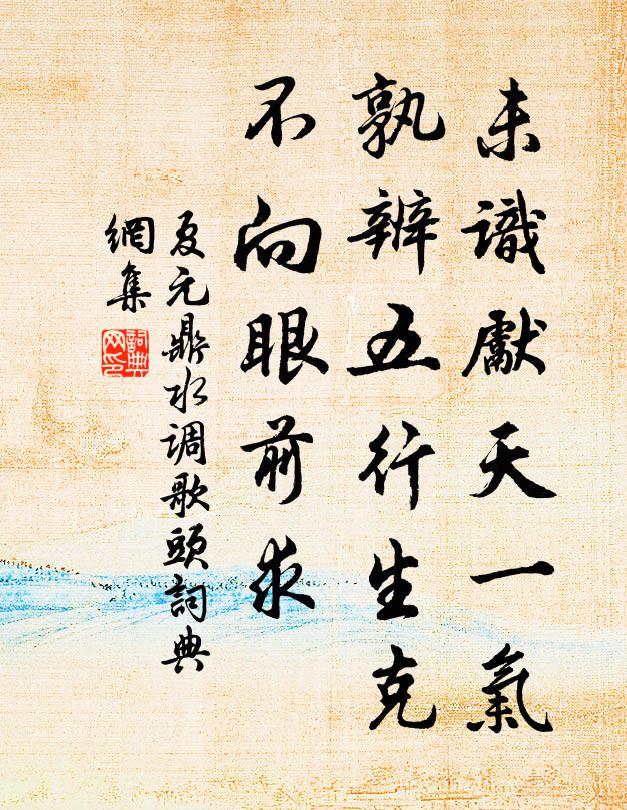 未識獻天一氣
孰辨五行生克
不向眼前求
夏元鼎水调歌頭詞典
網集
詞典網印